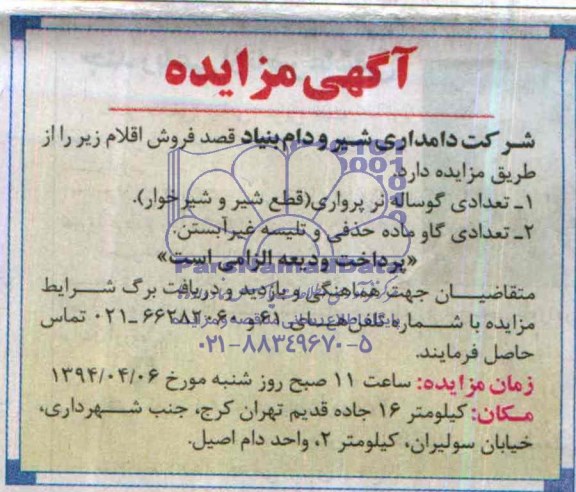 آگهی مزایده
شرکت دامداری شیر و دام بنیاد قصد فروش اقلام زیر را از
طریق مزایده دارد.
۱ـ تعدادی گوساله نر پرواری(قطع شیر و شیرخوار).
۲ـ تعدادی گاو ماده حذفی و تلیسه غیرآبستن.
«پرداخت ودیعه الزامی است»
متقاضیان جهت هماهنگی و بازدید و دریافت برگ شرایط
مزایده با شماره تلفن های ۶۱ و ۶۶۲۸۲۰۶۰ـ۰۲۱ تماس
حاصل فرمایند.
۰۲۱-۸۸۳۴۹۶۷۰-۵
زمان مزایده: ساعت ۱۱ صبح روز شنبه مورخ ۱۳۹۴/۰۴/۰۶
مکان: کیلومتر ۱۶ جاده قدیم تهران کرج، جنب شهرداری،
خیابان سولیران، کیلومتر ۲، واحد دام اصیل.